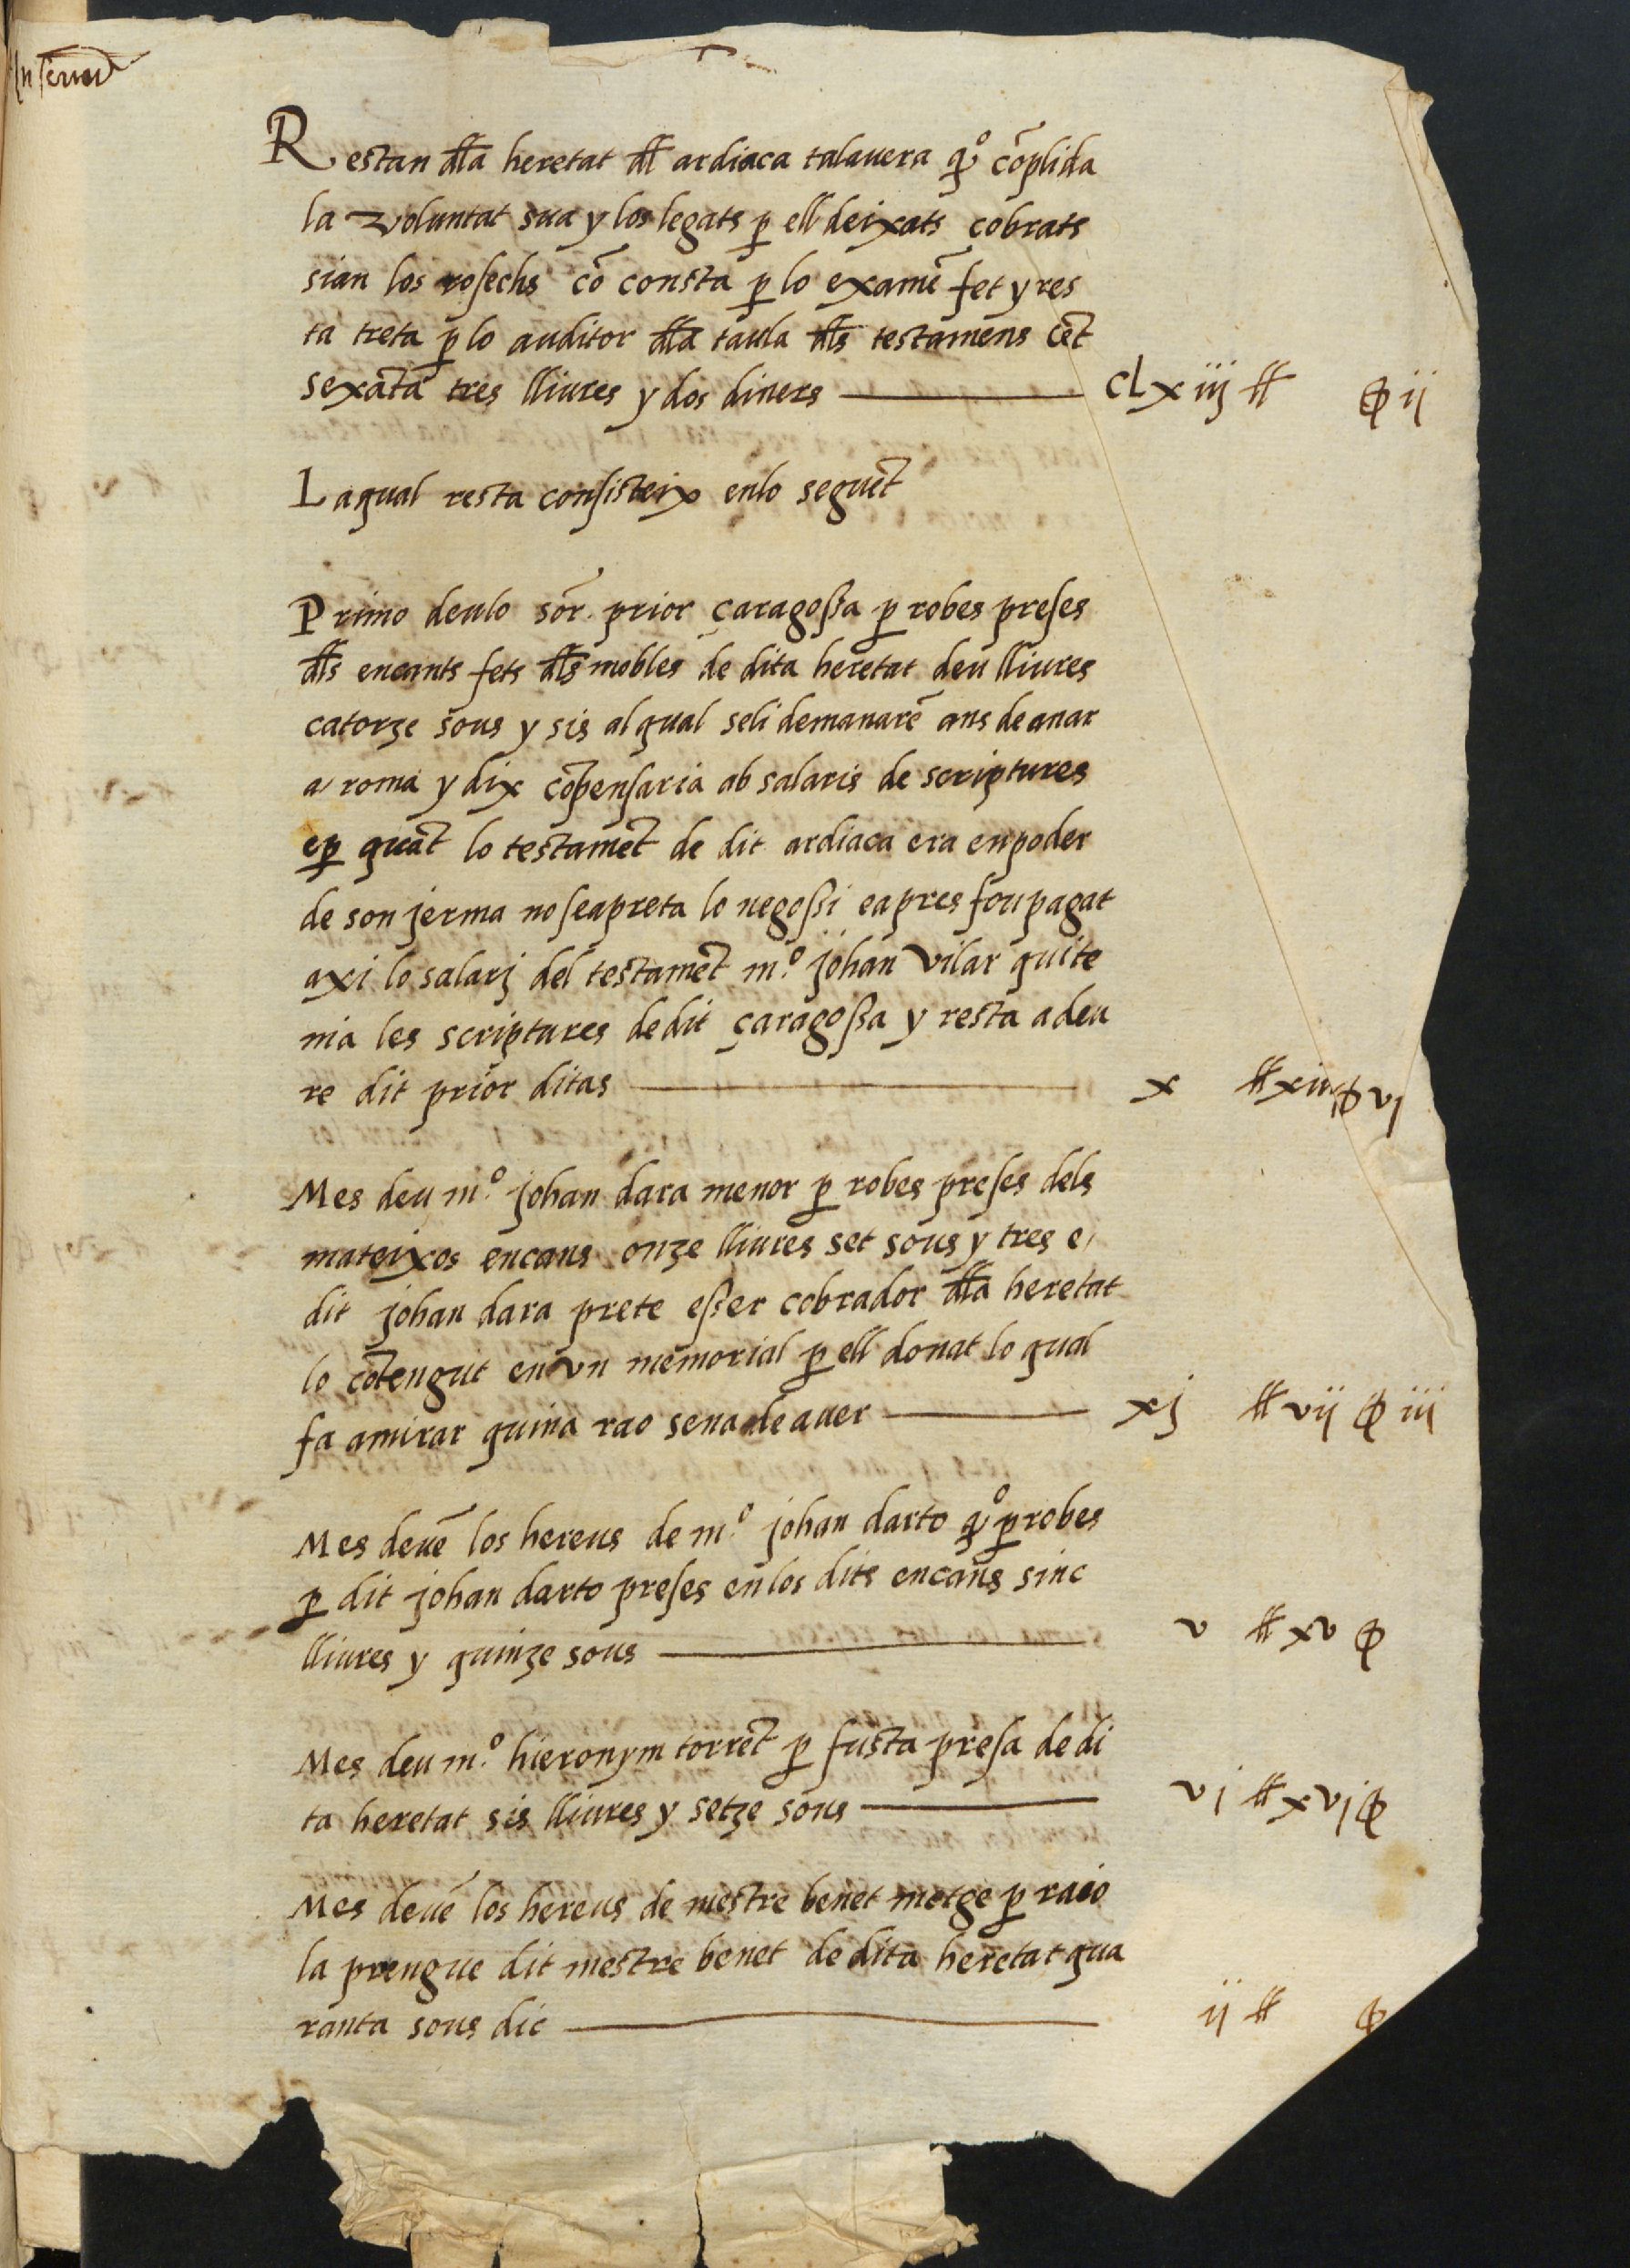 Restan dlla heretat dll ardiaca talauera qº cõplida
la voluntat sua y los legats p ell deixats cobrats
sian los rosechs cõ consta p lo examẽ fet y res
ta treta p lo auditor dlla taula dlls testamens cẽt
sexãta tres lliures y dos diners clxiij ll ii
La qual resta consisteix enlo seguẽt
Primo deulo sõr. prior çaragossa p robes preses
dlls encants fets dlls mobles de dita heretat deu lliures
catorze sous y sis alqual seli demanarẽ ans de anar
a roma y dix cõpensaria ab salaris de scriptures
e p quãt lo testamẽt de dit ardiaca era enpoder
de son jerma no seapreta lo negossi eapres fou pagat
axi lo salarj del testamẽt m.º johan vilar quite
nia les scriptures dedit çaragossa y resta adeu
re dit prior ditas x ll xiiij vj
Mes deu m.º johan dara menor p robes preses dels
mateixos encans onze lliures set sous y tres e
dit johan dara prete esser cobrador dlla heretat
lo cõtengut en vn memorial p ell donat lo qual
fa amirar quina rao sena de auer xj ll vij iij
Mes deuẽ los hereus de m.º johan darto qº p robes
p dit johan darto preses enlos dits encans sinc
lliures y quinze sous v ll xv
Mes deu m.º hieronym torrẽt p fusta presa de di
ta heretat sis lliures y setze sous vj ll xvj
Mes deuẽ los hereus de mestre benet metge p raio
la prengue dit mestre benet de dita heretat qua
ranta sous dic ij ll